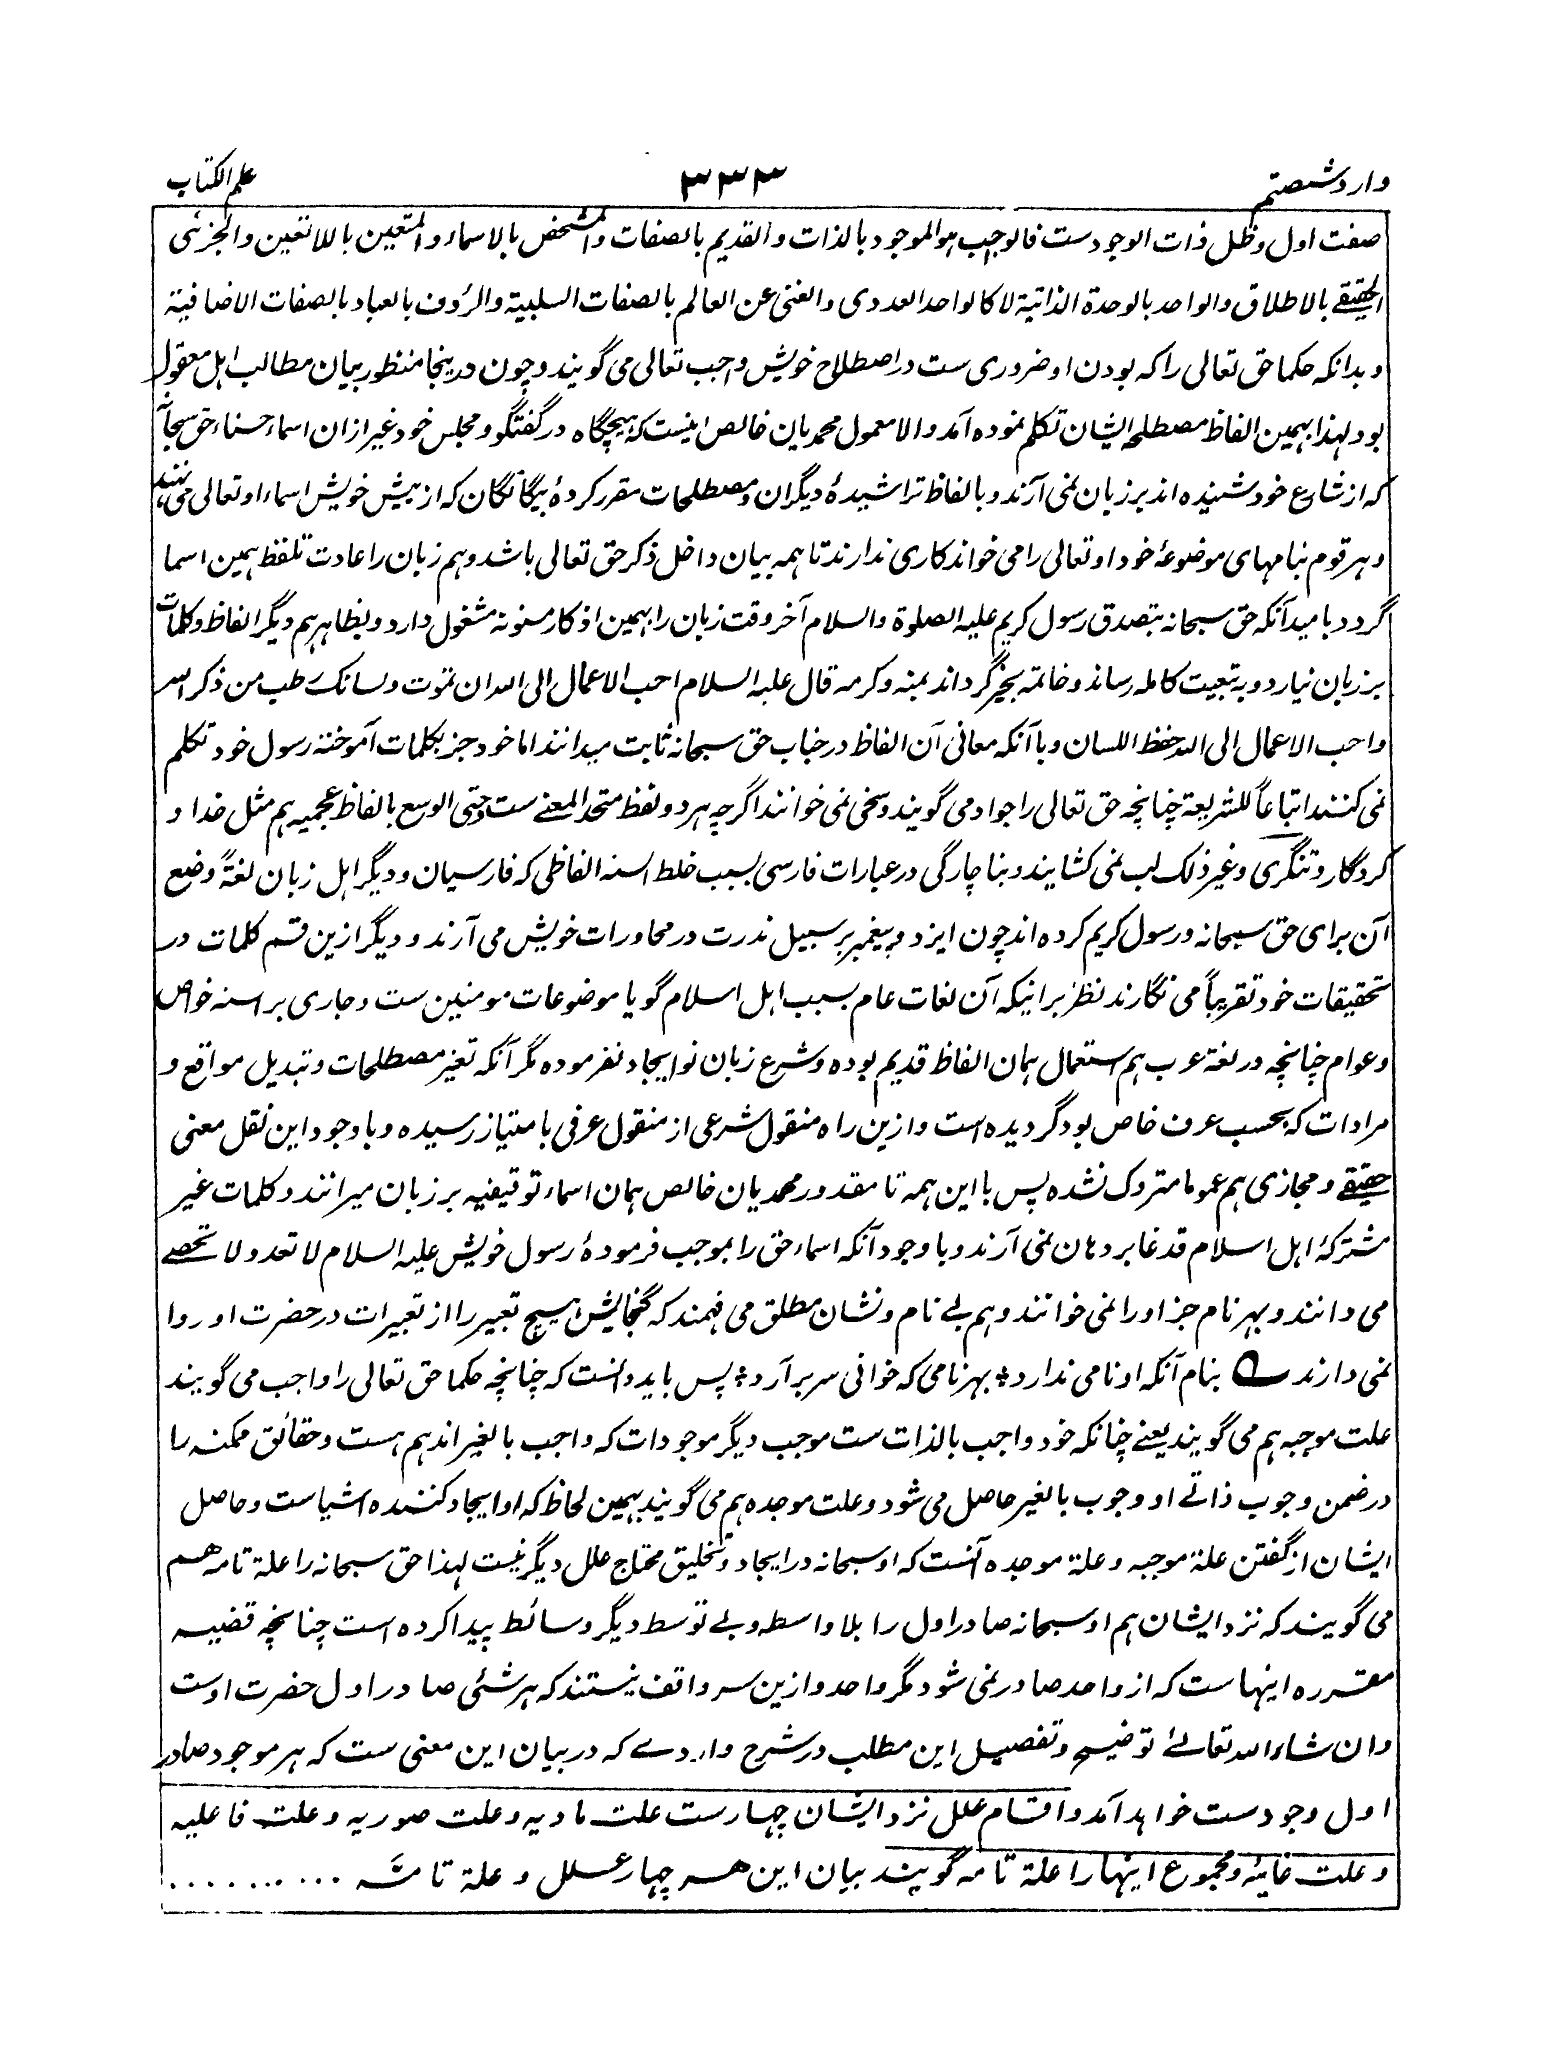 وارد شصتم ۳۳۳ علم الکتاب
صفت اول وظل ذات الوجودست فالواجب هو الموجود بالذات والقدیم بالصفات والمشخص بالاسماء والمتعین باللاتعین والجزئی
الحقیقے بالاطلاق والواحد بالوحدة الذاتیة لا کالواحد العددی والغنی عن العالم بالصفات السلبیة والرؤف بالعباد بالصفات الاضافیة
وبدانکه حکما حق تعالی را که بودن او ضروری ست در اصطلاح خویش واجب تعالی می گویند و چون درینجا منظور بیان مطالب اهل معقول
بود لهذا بهمین الفاظ مصطلحه ایشان تکلم نموده آمد و الا معمول محمدیان خالص اینست که هیچگاه در گفتگو و مجلس خود غیر ازان اسماء حسناء حق سبحانه
که از شارع خود شنیده اند بر زبان نمی آرند و بالفاظ تراشیدۀ دیگران و مصطلحات مقرر کردۀ بیگانگان که از پیش خویش اسماء او تعالی می نهند
و هر قوم بنامهای موضوعۀ خود او تعالی را می خواند کاری ندارند تا همه بیان داخل ذکر حق تعالی باشد و هم زبان را عادت تلفظ همین اسما
گردد بامید آنکه حق سبحانه بتصدق رسول کریم علیه الصلوة والسلام آخر وقت زبان را بهمین اذکار مسنونه مشغول دارد و بظاهر هم دیگر الفاظ و کلمات
بر زبان نیارد و به تبعیت کامله رساند و خاتمه بخیر گرداند بمنه و کرمه قال علیه السلام احب الاعمال الی الله ان تموت ولسانک رطب من ذکر الله
واحب الاعمال الی الله حفظ اللسان و با آنکه معانی آن الفاظ در جناب حق سبحانه ثابت میدانند اما خود جز بکلمات آموخته رسول خود تکلم
نمی کنند اتباعاً للشریعة چنانچه حق تعالی را جواد می گویند و سخی نمی خوانند اگرچه هر دو لفظ متحد المعنے ست و حتی الوسع بالفاظ عجمیه هم مثل خدا و
کردگار و تنگری و غیر ذلک لب نمی کشایند و بناچارگی در عبارات فارسی بسبب خلط السنه الفاظی که فارسیان و دیگر اهل زبان لغةً وضع
آن برای حق سبحانه و رسول کریم کرده اند چون ایزد و پیغمبر بر سبیل ندرت در محاورات خویش می آرند و دیگر ازین قسم کلمات در
تحقیقات خود تقریباً می نگارند نظر برانیکه آن لغات عام بسبب اهل اسلام گویا موضوعات مومنین ست و جاری بر السنه خواص
و عوام چنانچه در لغة عرب هم استعمال همان الفاظ قدیم بوده و شرع زبان نو ایجاد نفرموده مگر آنکه تغیر مصطلحات و تبدیل مواقع و
مرادات که بحسب عرف خاص بود گردیده است و ازین راه منقول شرعی از منقول عرفی بامتیاز رسیده و با وجود این نقل معنی
حقیقے و مجازی هم عموما متروک نشده پس با این همه تا مقدور محمدیان خالص همان اسماء توقیفیه بر زبان میرانند و کلمات غیر
مشترکۀ اهل اسلام قدغا بر دهان نمی آرند و با وجود آنکه اسماء حق را بموجب فرمودۀ رسول خویش علیه السلام لا تعد ولا تحصے
می دانند و بهر نام جز او را نمی خوانند و هم بے نام و نشان مطلق می فهمند که گنجایش هیچ تعبیر را از تعبیرات در حضرت او روا
نمی دارند بنام آنکه او نامی ندارد ٭ بهر نامی که خوانی سر بر آرد ٭ پس باید دانست که چنانچه حکما حق تعالی را واجب می گویند
علت موجبه هم می گویند یعنے چنانکه خود واجب بالذات ست موجب دیگر موجودات که واجب بالغیر اند هم هست و حقائق ممکنه را
در ضمن وجوب ذاتے او وجوب بالغیر حاصل می شود و علت موجده هم می گویند بهمین لحاظ که او ایجاد کننده اشیاست و حاصل
ایشان از گفتن علة موجبه و علة موجده آنست که او سبحانه در ایجاد و تخلیق محتاج علل دیگر نیست لهذا حق سبحانه را علة تامه هم
می گویند که نزد ایشان هم او سبحانه صادر اول را بلا واسطه و بے توسط دیگر وسائط پیدا کرده است چنانچه قضیه
مقرره اینهاست که از واحد صادر نمی شود مگر واحد و ازین سر واقف نیستند که هر شئی صادر اول حضرت اوست
و ان شاء الله تعالےٰ توضیح و تفصیل این مطلب در شرح واردے که در بیان این معنی ست که هر موجود صادر
اول وجودست خواهد آمد و اقسام علل نزد ایشان چهارست علت مادیه و علت صوریه و علت فاعلیه
و علت غائیه و مجموع اینها را علة تامه گویند بیان این هر چهار علل و علة تامه ..........